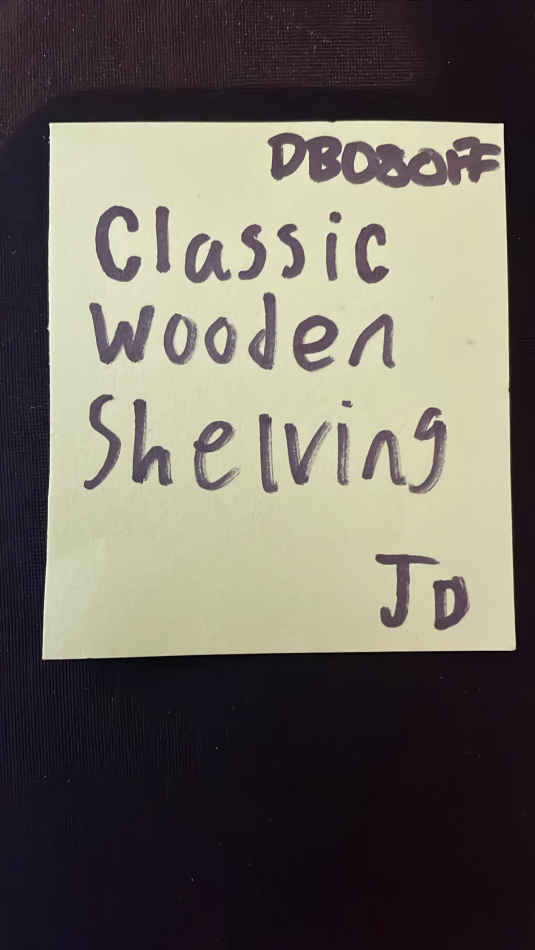 DB08017
Classic
Wooden
Shelving
JD